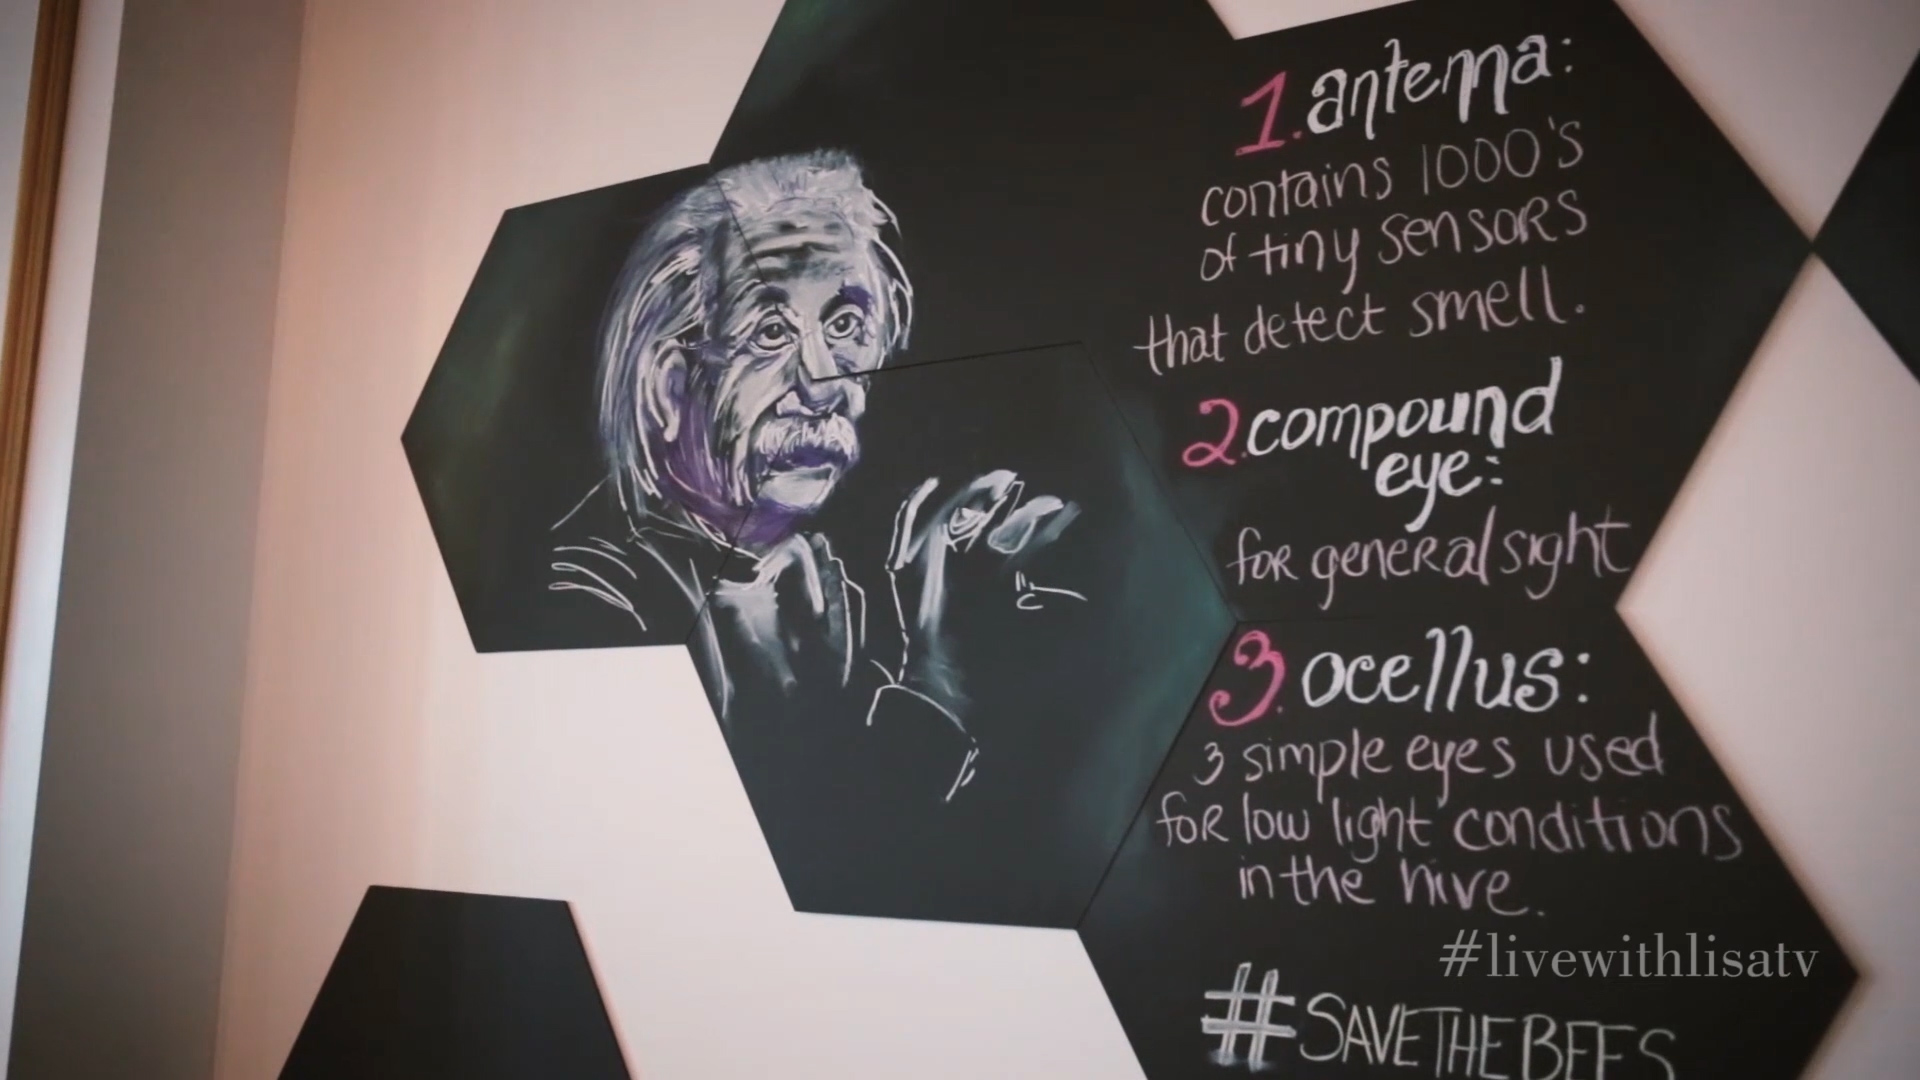 1. antenna:
contains 1000's
of tiny sensors
that detect smell.
2. compound
eye:
for general sight
3. ocellus:
3 simple eyes used
for low light conditions
in the hive.
#livewithlisatv
#SAVETHEBEES